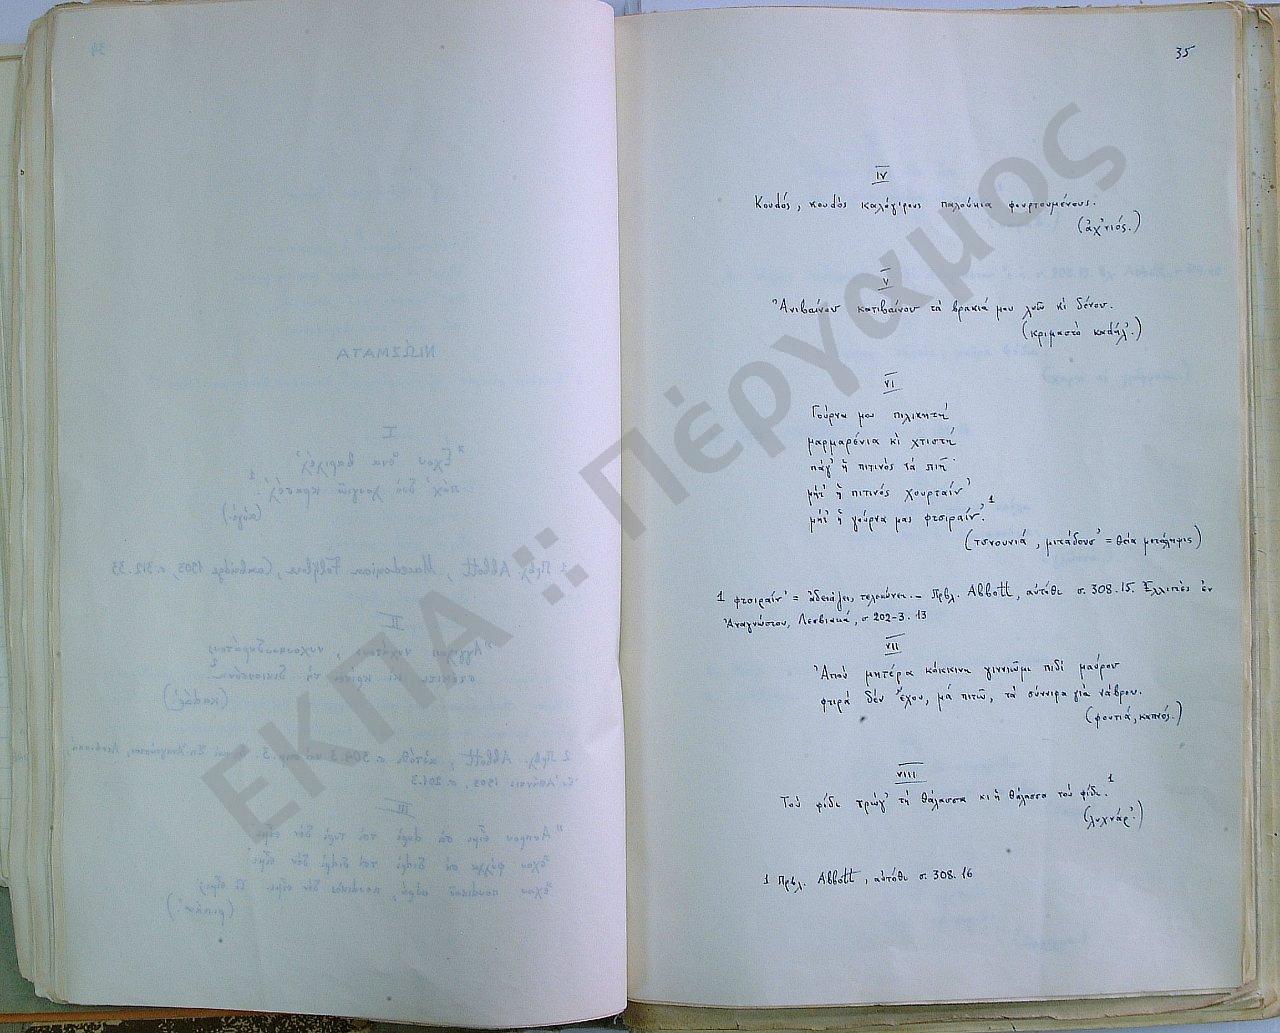 35
IV
Κουdός, κουdὸς καλόγιρους παλούκια φουρτουμένους.
(ἀχ'νιός.)
V
Ἀνιβαίνου κατιβαίνου τὰ βρακιά μου λυῶ κὶ δένου.
(κριμαστὸ καdήλ'.)
VI
Γούρνα μου πιλικητή
μαρμαρένια κὶ χτιστή
πάγ' ἡ πιτινὸς νὰ πιῆ
μήτ' ἡ πιτινὸς χουρταίν'
μήτ' ἡ γούρνα μας φτσιραίν'.1
(τσνουνιά, μιτάδουσ' = θεία μετάληψις)
1 φτσιραίν' = ἀδειάζει, τελειώνει. – Πρβλ. Abbott, αὐτόθι σ. 308.15. Ἐλλιπὲς ἐν
Ἀναγνώστου, Λεσβιακά, σ 202-3. 13
VII
Ἀπού μητέρα κόκκινη γιννιῶμι πιδὶ μαύρου
φτιρὰ δὲν ἔχου, μὰ πιτῶ, τὰ σύννιφα γιὰ νἄβρου.
(φουτιά, καπνός.)
VIII
Τοὺ φίδι τρώγ' τὴ θάλασσα κι ἡ θάλασσα τοὺ φίδι.1
(λυχνάρ'.)
1 Πρβλ. Abbott, αὐτόθι σ. 308.16
ΕΚΠΑ :: Πέργαμος